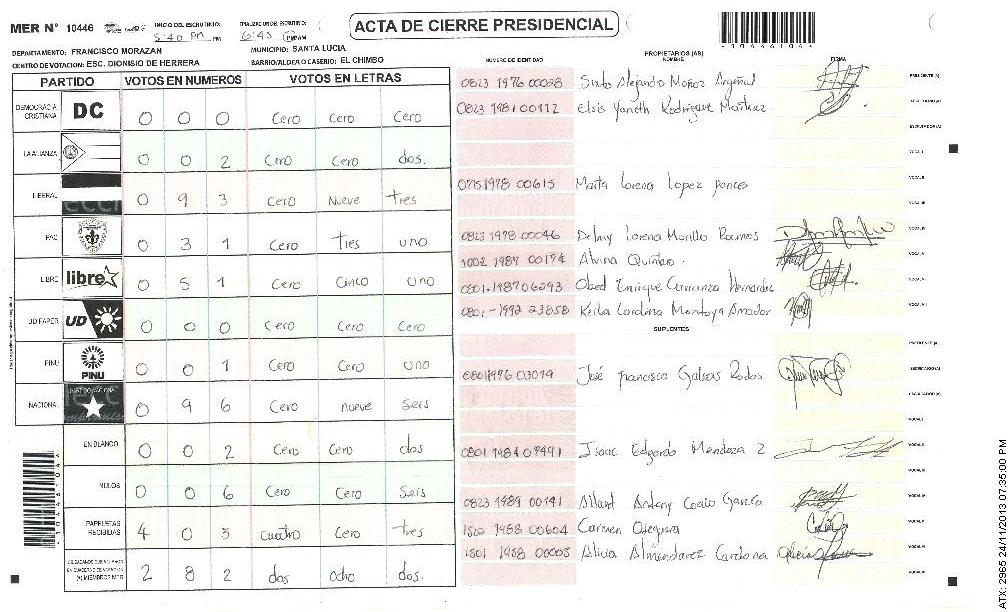 MER N° 10446
INICIO DEL ESCRUTINIO: 5:40 PM
FINALIZACION DEL ESCRUTINIO: 6:45
ACTA DE CIERRE PRESIDENCIAL
104461044
DEPARTAMENTO: FRANCISCO MORAZAN
MUNICIPIO: SANTA LUCIA
CENTRO DE VOTACION: ESC. DIONISIO DE HERRERA
BARRIO/ALDEA O CASERIO: EL CHIMBO
PARTIDO VOTOS EN NUMEROS VOTOS EN LETRAS
DEMOCRACIA CRISTIANA DC 0 0 0 Cero Cero Cero
LA ALIANZA 0 0 2 Cero Cero dos.
LIBERAL 0 9 3 Cero Nueve tres
PAC 0 3 1 Cero Tres uno
LIBRE libre 0 5 1 Cero Cinco uno
UD FAPER UD 0 0 0 Cero Cero Cero
PINU PINU 0 0 1 Cero Cero uno
NACIONAL 0 9 6 Cero nueve Seis
EN BLANCO 0 0 2 Cero Cero dos
NULOS 0 0 6 Cero Cero Seis
PAPELETAS RECIBIDAS 4 0 3 cuatro Cero tres
2 8 2 dos ocho dos.
NUMERO DE IDENTIDAD PROPIETARIOS (AS) NOMBRE FIRMA
0823 1976 00038 Sixto Alejandro Muñoz Argeñal PRESIDENTE (A)
0823 1981 00112 Elsis Yaneth Rodriguez Martinez SECRETARIO (A)
ESCRUTADOR (A)
VOCAL I
1978 00615 Marta Lorena Lopez Ponce VOCAL II
VOCAL III
0823 1978 00046 Delmy Lorena Murillo Ramos VOCAL IV
1002 1987 00174 Alvina Quintero. VOCAL V
0801-1987 06293 Obed Enrique Carranza Hernandez VOCAL VI
0801-1992 23858 Keila Carolina Montoya Amador VOCAL VII
SUPLENTES
PRESIDENTE (A)
0801 1976 03019 José Francisco Galeas Rodas SECRETARIO (A)
ESCRUTADOR (A)
VOCAL I
0801 1984 07491 Isaac Edgardo Mendoza Z VOCAL II
VOCAL III
0823 1989 00141 Allant Antony Cerrito García VOCAL IV
1502 1988 00604 Carmen Oseguera VOCAL V
1501 1958 00005 Alicia Almendarez Cardona VOCAL VI
VOCAL VII
ATX: 2965 24/11/2013 07:35:00 PM